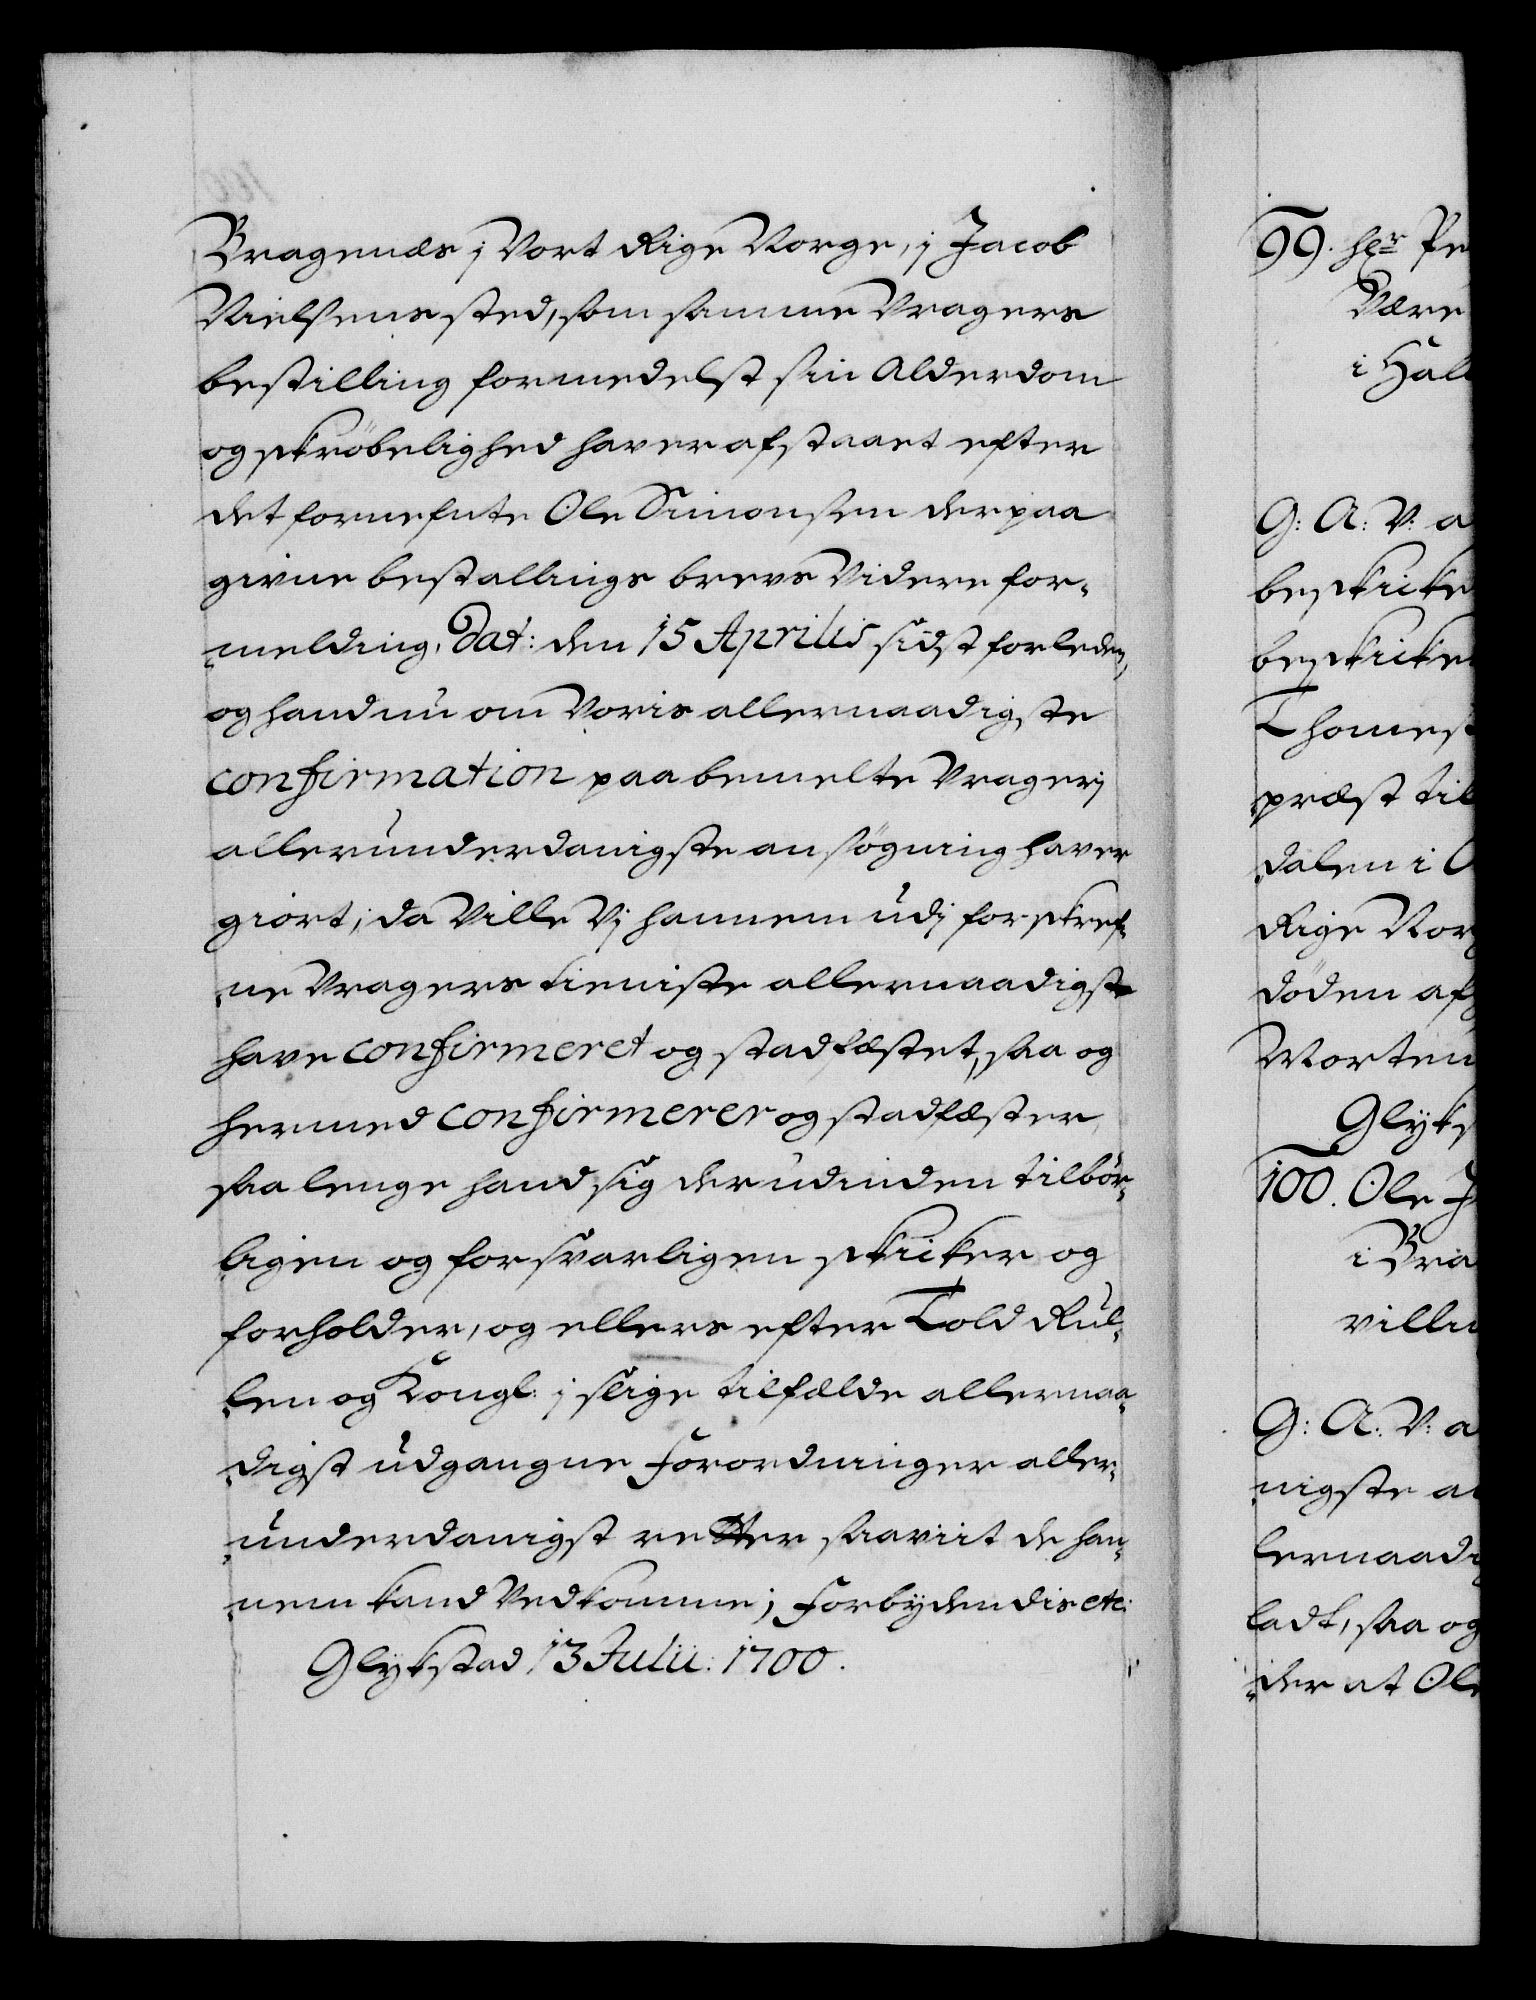 Bragenæs j Vort Rige Norge, j Jacob
Nielsens sted, som samme Vragers
bestilling formedelst sin Alderdom
og skröbelighed haver afstaaet efter
det fornefnte Ole Simonsen derpaa
givne bestallings brevs Videre for-
melding, Dat: den 15 Aprilis sidst forleden,
og hand nu om Voris allernaadigste
confirmation paa bemelte Vragerj
allerunderdanigste ansögning haver
giort; da Ville Vj hannem udj forskref-
ne Vragers tieniste allernaadigst
have confirmeret og stadfæstet, saa og
hermed confirmerer og stadfæster,
saa lenge hand sig derudinden tilbör-
ligen og forsvarligen skicker og
forholder, og ellers efter Told Rul-
len og Kongl: j slige tilfælde allernaa-
digst udgangne Forordninger aller-
underdanigst retter saaviit de han-
nem kand Vedkomme; Forbydendis etc:
Glykstad 13 Julii: 1700.
99. Hr Pe
Være
i Hall
G: A: V: a
beskicke
beskicke
Thomes
præst til
dalen i
Rige Nor
döden af
Morten
Glyks
100. Ole J
i Bra
villi
G: A: V: a
nigste a
lernaadi
ladt, saa og
der at Ole